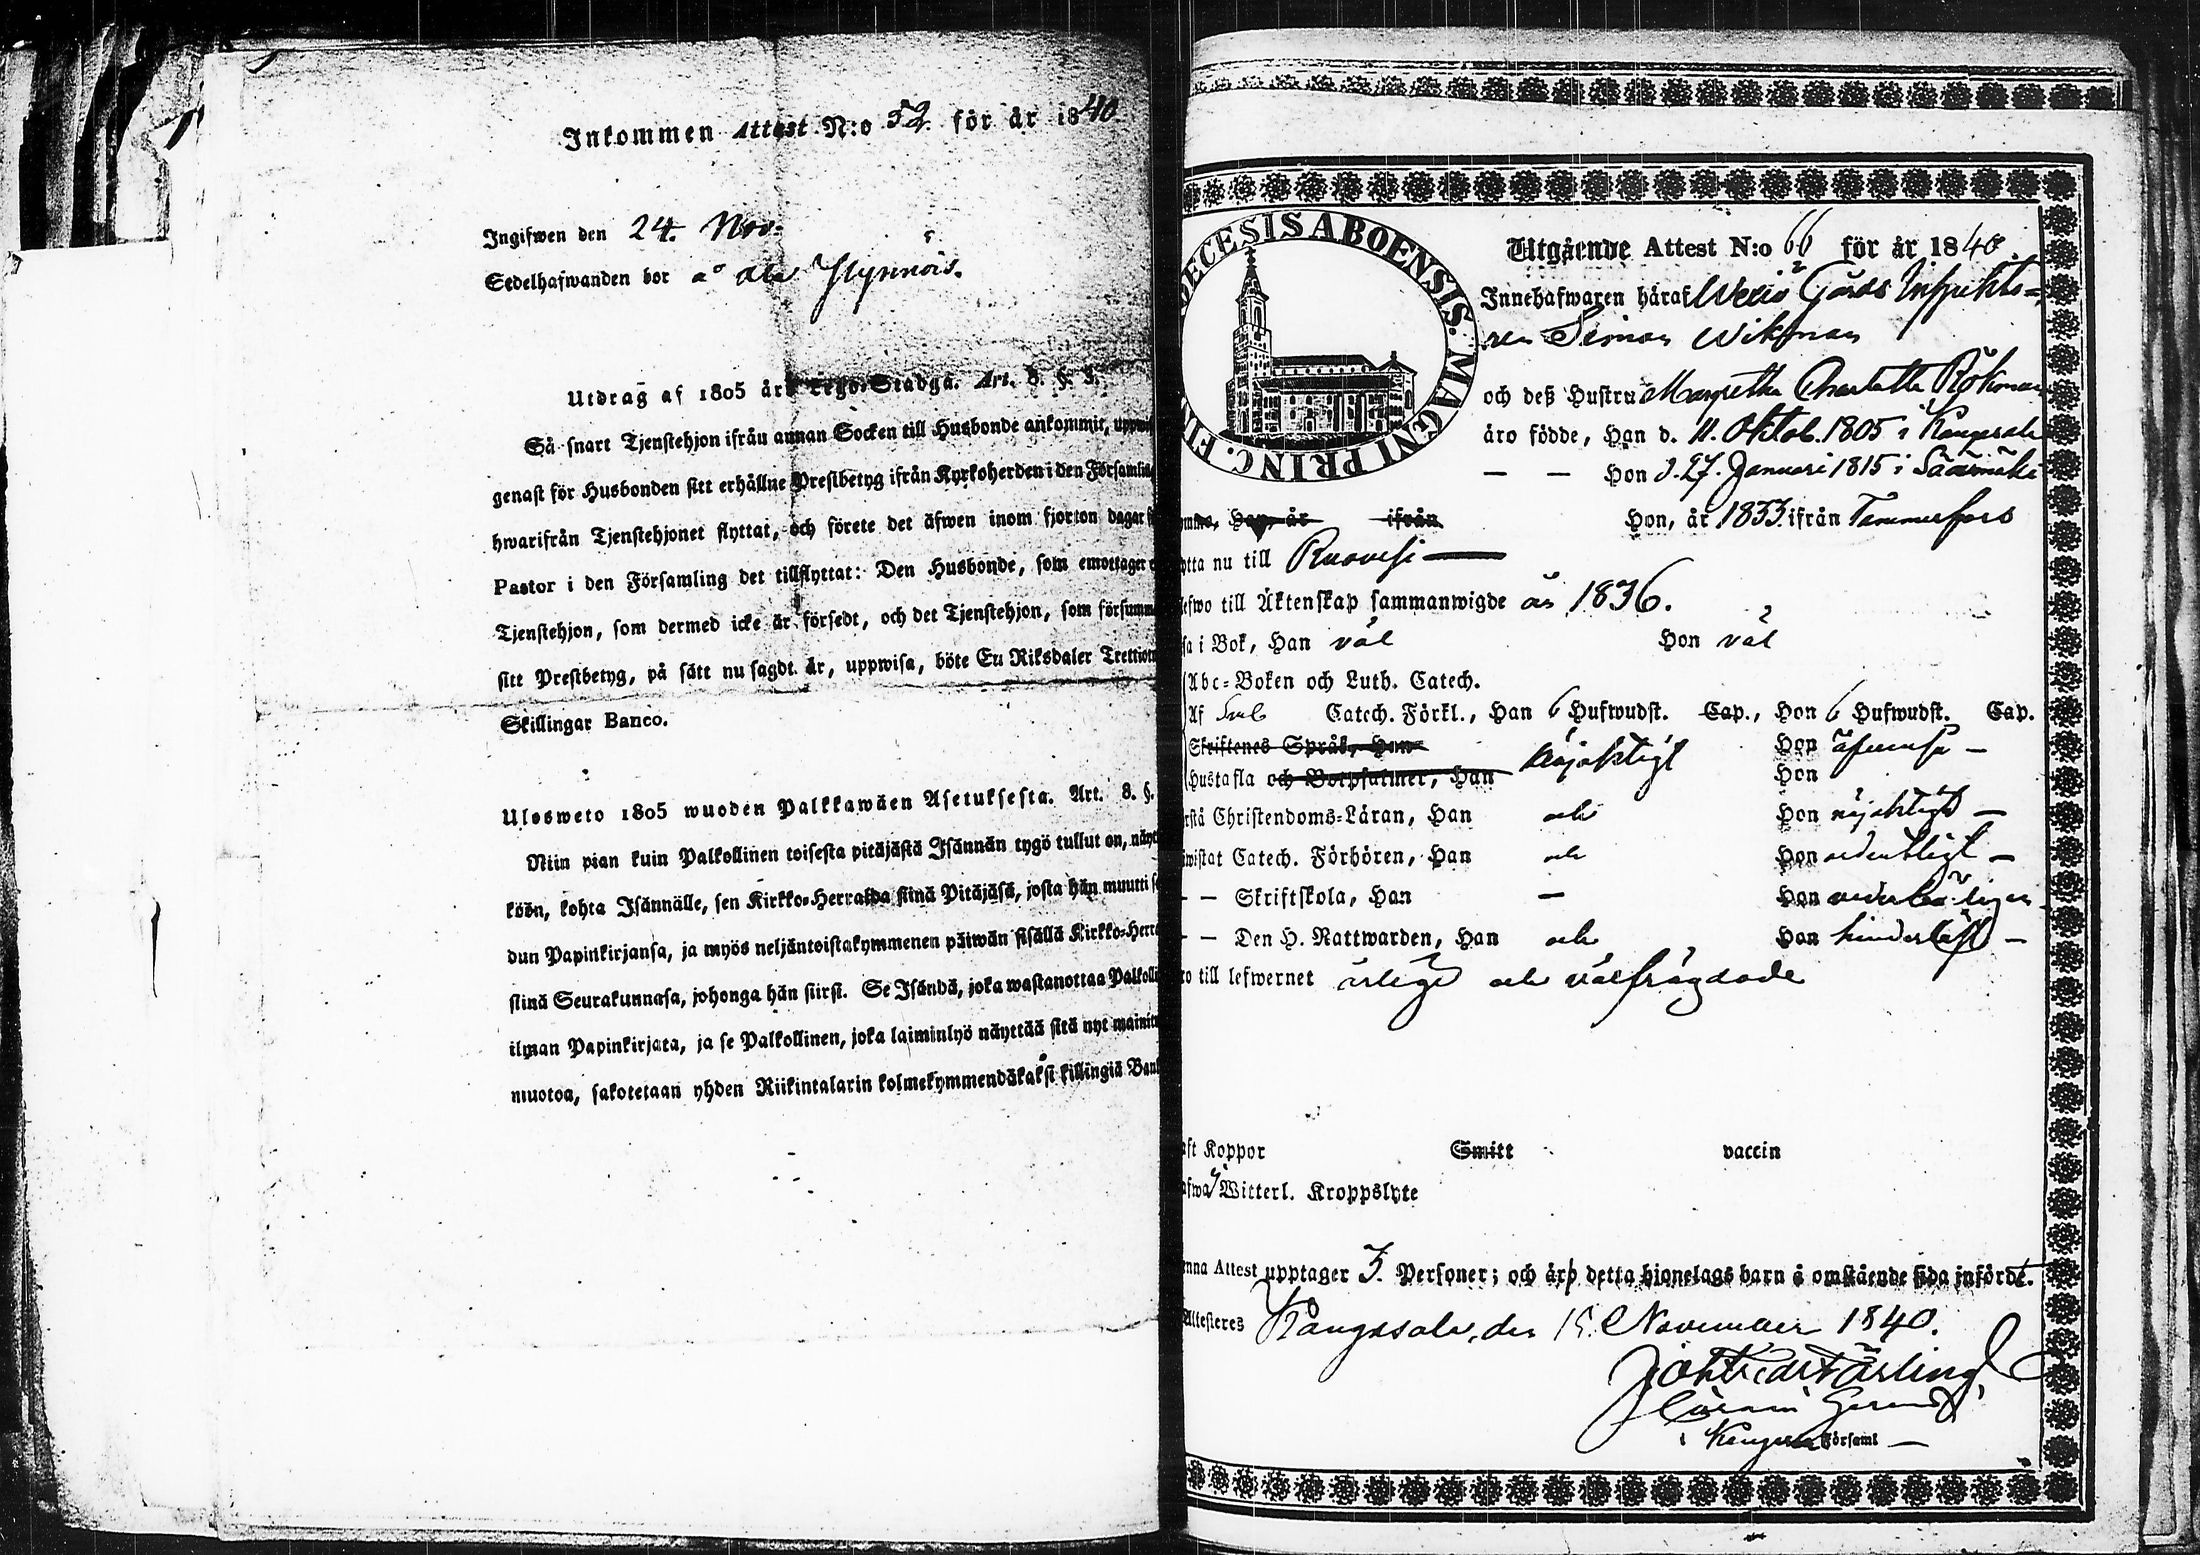 Inkommen Attest N:o 52. för år 1840
Ingifwen den 24. Nov.
Sedelhafwanden bor å
Utdrag af 1805 års Lego-Stadga. Art. 8. §. 3.
Så snart Tjenstehjon ifrån annan Socken till Husbonde ankommit, uppwi
genast för Husbonden sitt erhållne Prestbetyg ifrån Kyrkoherden i den Församling
hwarifrån Tjenstehjonet flyttat, och förete det äfwen inom fjorton dagar
Pastor i den Församling det tillflyttat: Den Husbonde, som emottager
Tjenstehjon, som dermed icke är försedt, och det Tjenstehjon, som försumm
sitt Prestbetyg, på sätt nu sagdt är, uppwisa, böte En Riksdaler Trettiotw
Skillingar Banco.
Ulosweto 1805 wuoden Palkkawäen Asetuksesta. Art. 8. §.
Niin pian kuin Palkollinen toisesta pitäjästä Isännän tygö tullut on, näyt
köön, kohta Isännälle, sen Kirkko-Herralda siinä Pitäjäsä, josta hän muutti
dun Papinkirjansa, ja myös neljäntoistakymmenen päiwän sisällä Kirkko-Herra
siinä Seurakunnasa, johonga hän siirsi. Se Isändä, joka wastanottaa Palkolli
ilman Papinkirjata, ja se Palkollinen, joka laiminlyö näyttää sitä nyt mainitu
muotoa, sakotetaan yhden Riikintalarin kolmekymmendäkaksi killingiä Ban
DECESIS ABOENSIS. MAGNI PRINC. FI
Utgående Attest N:o 66 för år 1840.
Innehafwaren häraf Wexiö Gårds Inspekto-
ren Simon Wikman
och deß Hustru Margretha Charlotta Rökman
äro födde, Han d. 11. Oktob. 1805 i Kangasala
— — Hon d. 27. Januari 1815 i Sääxmäki
omne, Han, år ifrån Hon, år 1833 ifrån Tammerfors
ytta nu till Ruovesi —
lefwo till Äktenskap sammanwigde år 1836.
sa i Bok, Han väl Hon väl
Abc-Boken och Luth. Catech.
Af Catech. Förkl., Han 6 Hufwudst. Cap., Hon 6 Hufwudst. Cap.
Skriftenes Språk, Han Hon
Hustafla och Botpsalmer, Han nöjaktigt Hon
rstå Christendoms-Läran, Han och Hon nöjaktigt —
iwistat Catech. Förhören, Han och Hon ordentligt —
— — Skriftskola, Han — Hon
— — Den H. Nattwarden, Han och Hon —
ro till lefwernet ärlige och välfrägdade
aft Koppor Smitt vaccin
afwa Witterl. Kroppslyte
nna Attest upptager 3. Personer; och äro detta hjonelags barn å omstående sida införde.
Attesteres Kangasala, den 15. November 1840.
i Kangasala Församl —